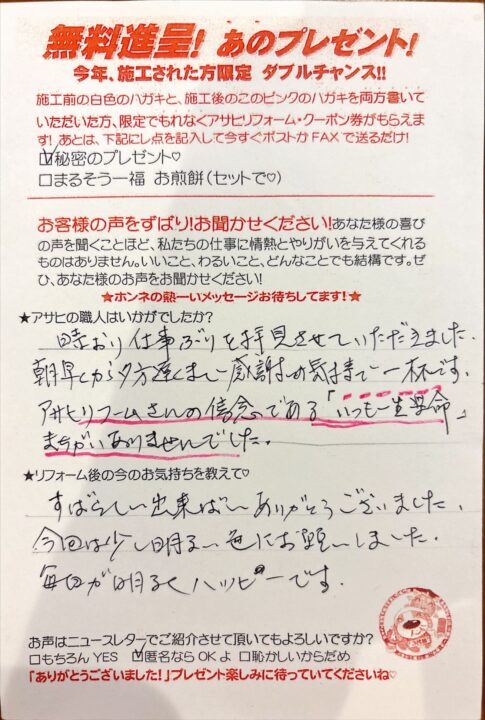 無料進呈! あのプレゼント!
今年、施工された方限定 ダブルチャンス!!
施工前の白色のハガキと、施工後のこのピンクのハガキを両方書いて
いただいた方、限定でもれなくアサヒリフォーム・クーポン券がもらえま
す! あとは、下記にレ点を記入して今すぐポストかFAXで送るだけ!
☑秘密のプレゼント♡
□まるそう一福 お煎餅(セットで♡)
お客様の声をずばり!お聞かせください!あなた様の喜び
の声を聞くことほど、私たちの仕事に情熱とやりがいを与えてくれる
ものはありません。いいこと、わるいこと、どんなことでも結構です。ぜ
ひ、あなた様のお声をお聞かせください!
★ホンネの熱ーいメッセージお待ちしてます!★
★アサヒの職人はいかがでしたか?
時おり仕事ぶりを拝見させていただきました.
朝早くから夕方遅くまで感謝の気持で一杯です.
アサヒリフォームさんの信念である「いつも一生懸命」
まちがいありませんでした.
★リフォーム後の今のお気持ちを教えて♡
すばらしい出来ばえ ありがとうございました.
今回は少し明るい色にお願いしました.
毎日が明るくハッピーです.
お声はニュースレターでご紹介させて頂いてもよろしいですか?
□もちろんYES ☑匿名ならOKよ □恥かしいからだめ
「ありがとうございました!」プレゼント楽しみに待っていてくださいね♡